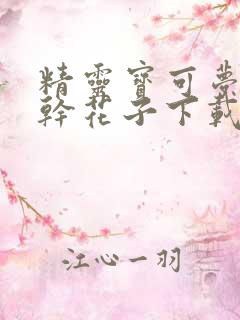 精靈寶可夢
幹花子下載
江心一羽